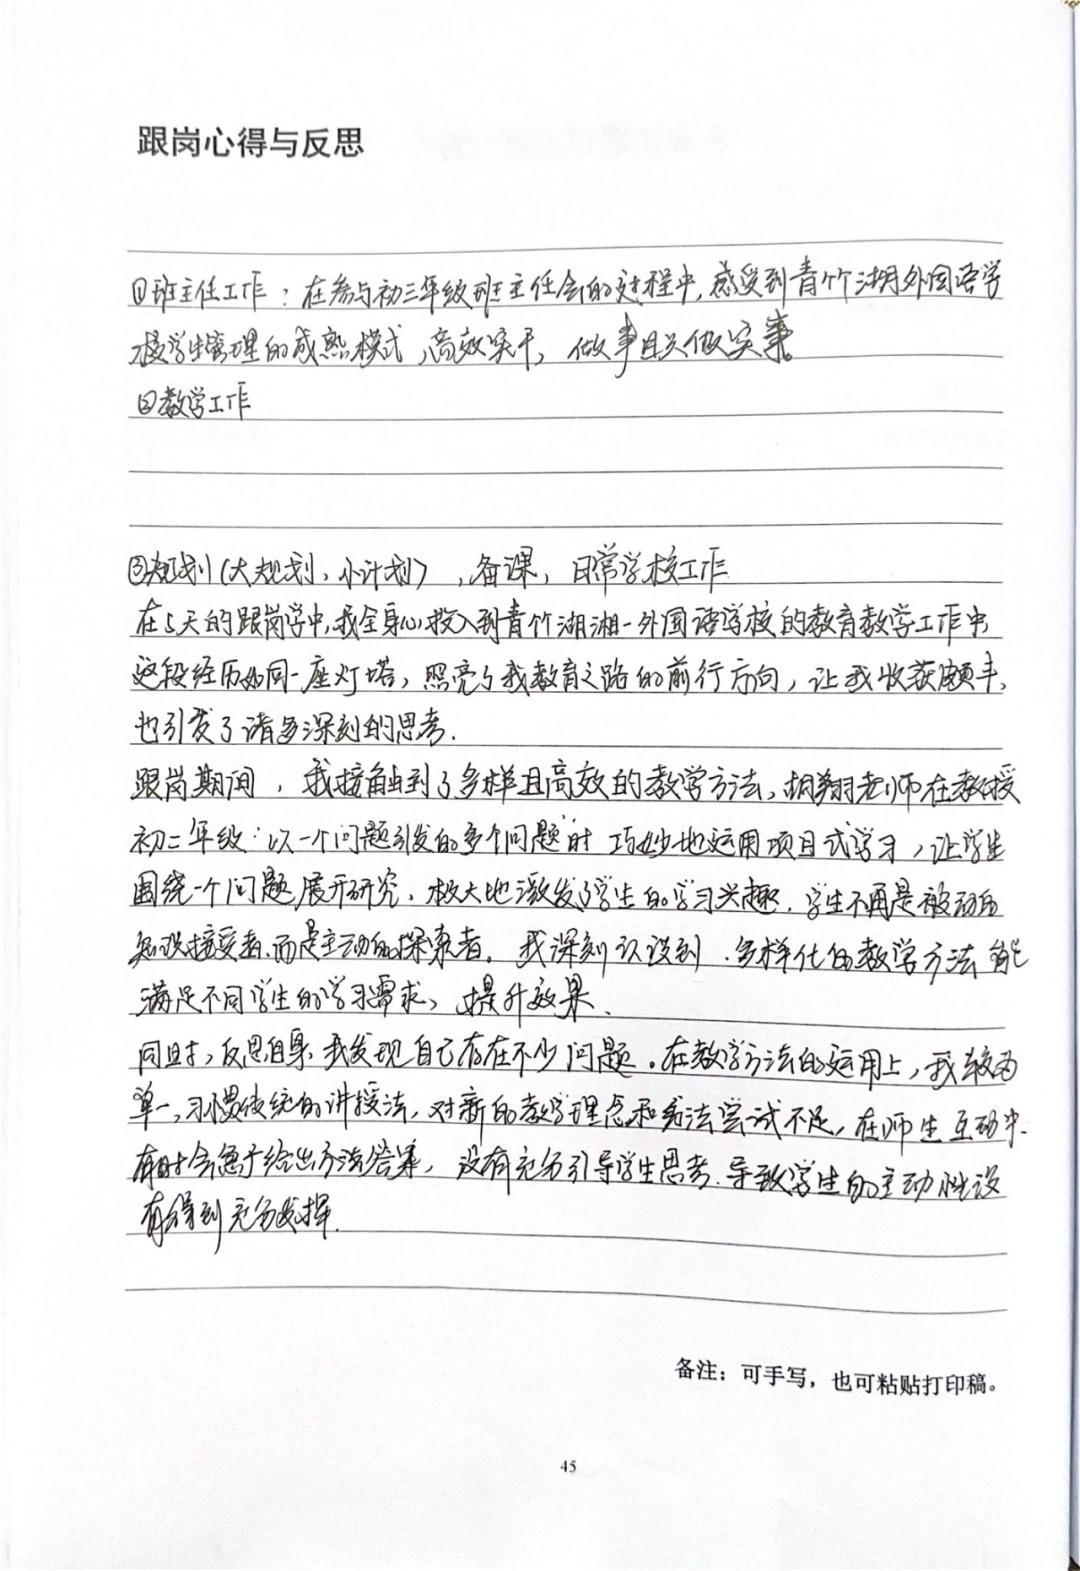 跟岗心得与反思
①班主任工作：在参与初三年级班主任会的过程中,感受到青竹湖外国语学
校学生管理的成熟模式,高效实干,做事且只做实事。
②教学工作
③规划(大规划,小计划),备课,日常学校工作
在5天的跟岗学中,我全身心投入到青竹湖湘一外国语学校的教育教学工作中
这段经历如同一座灯塔,照亮了我教育之路的前行方向,让我收获颇丰,
也引发了诸多深刻的思考.
跟岗期间,我接触到了多样且高效的教学方法,胡翔老师在教授
初二年级:以一个问题引发的多个问题时 巧妙地运用项目式学习,让学生
围绕一个问题展开研究,极大地激发了学生的学习兴趣.学生不再是被动的
知识接受者,而是主动的探索者。我深刻认识到,多样化的教学方法能
满足不同学生的学习需求,提升效果、
同时,反思自身,我发现自己存在不少问题。在教学方法的运用上,我较为
单一,习惯传统的讲授法,对新的教学理念和方法尝试不足,在师生互动中.
有时会急于给出方法答案,没有充分引导学生思考.导致学生的主动性没
有得到充分发挥.
备注：可手写，也可粘贴打印稿。
45